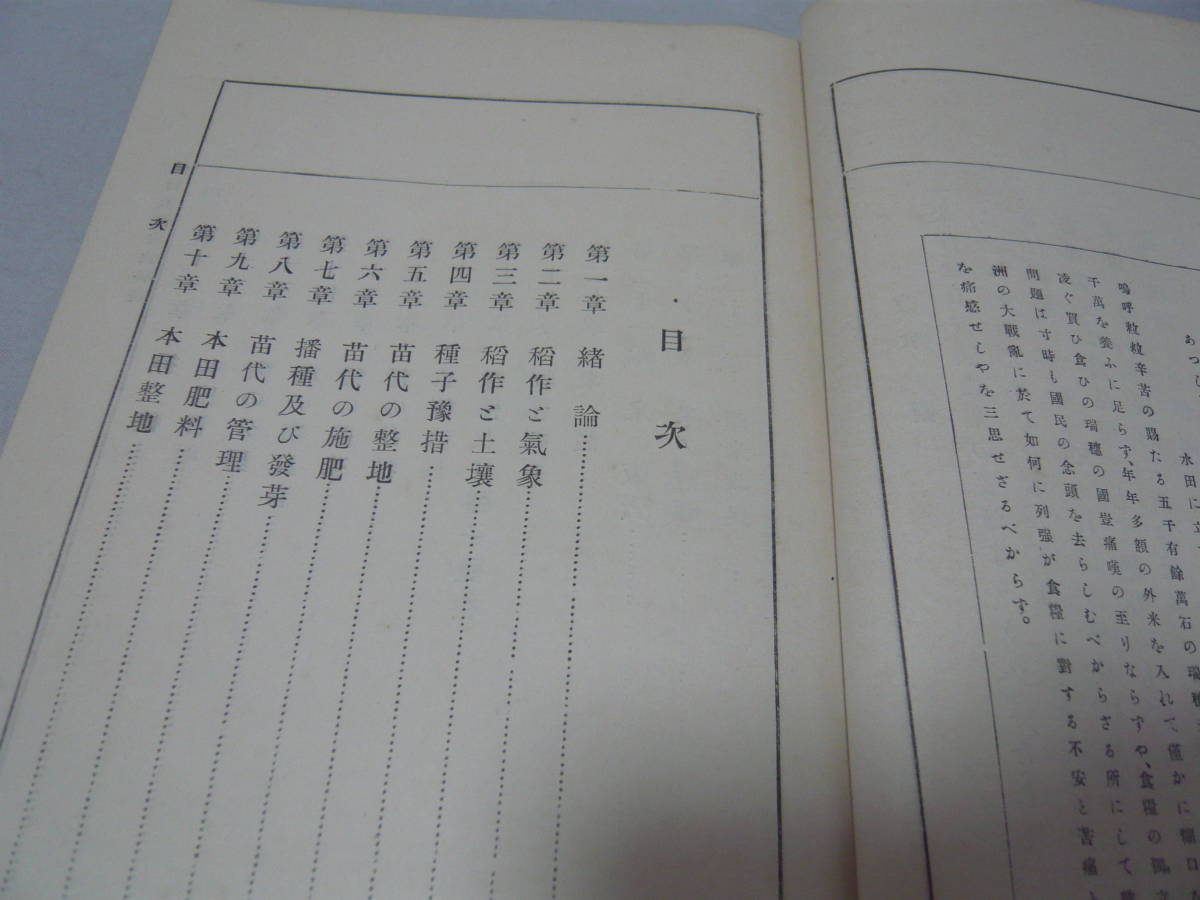 水田に立
あつし
嗚呼粒粒辛苦の賜たる五千有餘萬石の瑞穗
千萬を養ふに足らず、年年多額の外米を入れて僅かに糊口を
凌ぐ買ひ食ひの瑞穗の國豈痛嘆の至りならずや、食糧の
問題は寸時も國民の念頭を去らしむべからざる所にして
洲の大戰亂に於て如何に列强が食糧に對する不安と苦痛と
を痛感せしやを三思せざるべからす。
目次
第一章 緒論
第二章 稻作と氣象
第三章 稻作と土壤
第四章 種子豫措
第五章 苗代の整地
第六章 苗代の施肥
第七章 播種及び發芽
第八章 苗代の管理
第九章 本田肥料
第十章 本田整地
目次